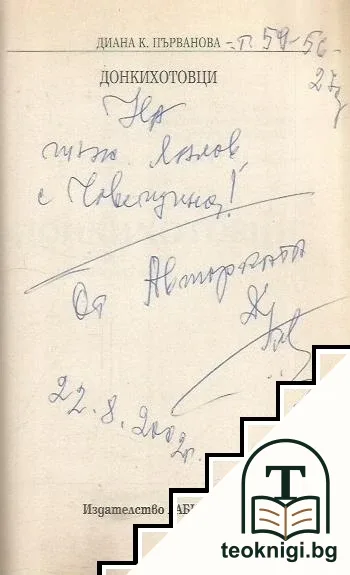 ДИАНА К. ПЪРВАНОВА - т. 59-56-
27
ДОНКИХОТОВЦИ
На
с Човещина!
От Авторката
22.8.2002г.
Издателство
T
teoknigi.bg